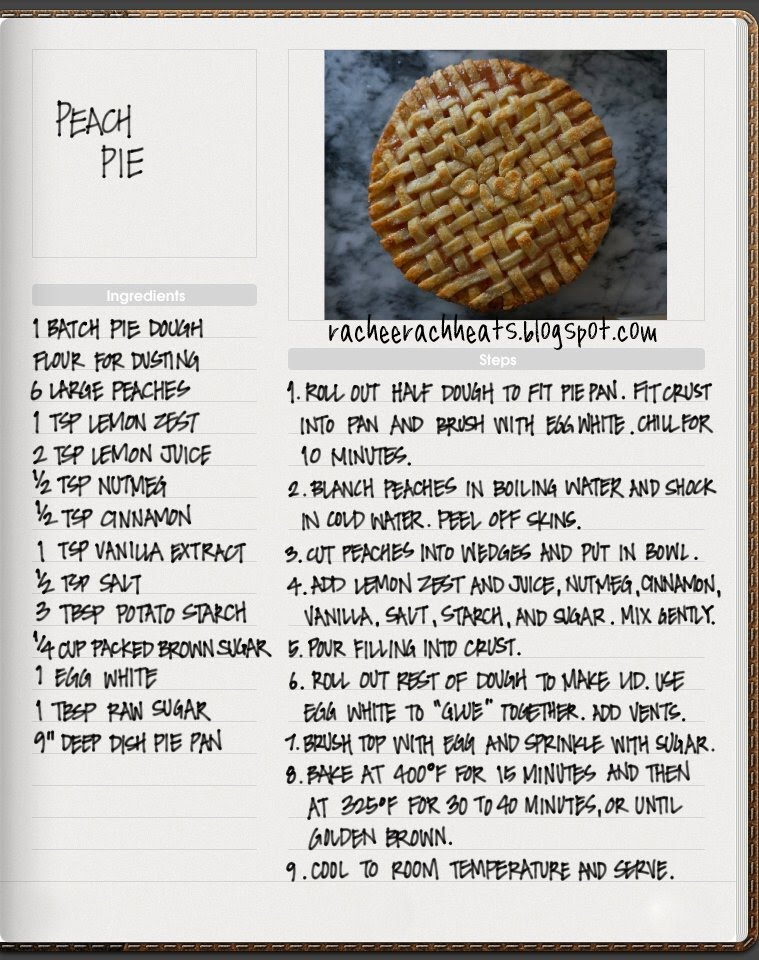 PEACH
PIE
Ingredients
1 BATCH PIE DOUGH
FLOUR FOR DUSTING
6 LARGE PEACHES
1 TSP LEMON ZEST
2 TSP LEMON JUICE
½ TSP NUTMEG
½ TSP CINNAMON
1 TSP VANILLA EXTRACT
½ TSP SALT
3 TBSP POTATO STARCH
¼ CUP PACKED BROWN SUGAR
1 EGG WHITE
1 TBSP RAW SUGAR
9" DEEP DISH PIE PAN
racheerachheats.blogspot.com
Steps
1. ROLL OUT HALF DOUGH TO FIT PIE PAN. FIT CRUST
INTO PAN AND BRUSH WITH EGG WHITE. CHILL FOR
10 MINUTES.
2. BLANCH PEACHES IN BOILING WATER AND SHOCK
IN COLD WATER. PEEL OFF SKINS.
3. CUT PEACHES INTO WEDGES AND PUT IN BOWL.
4. ADD LEMON ZEST AND JUICE, NUTMEG, CINNAMON,
VANILLA, SALT, STARCH, AND SUGAR. MIX GENTLY.
5. POUR FILLING INTO CRUST.
6. ROLL OUT REST OF DOUGH TO MAKE LID. USE
EGG WHITE TO "GLUE" TOGETHER. ADD VENTS.
7. BRUSH TOP WITH EGG AND SPRINKLE WITH SUGAR.
8. BAKE AT 400°F FOR 15 MINUTES AND THEN
AT 325°F FOR 30 TO 40 MINUTES, OR UNTIL
GOLDEN BROWN.
9. COOL TO ROOM TEMPERATURE AND SERVE.